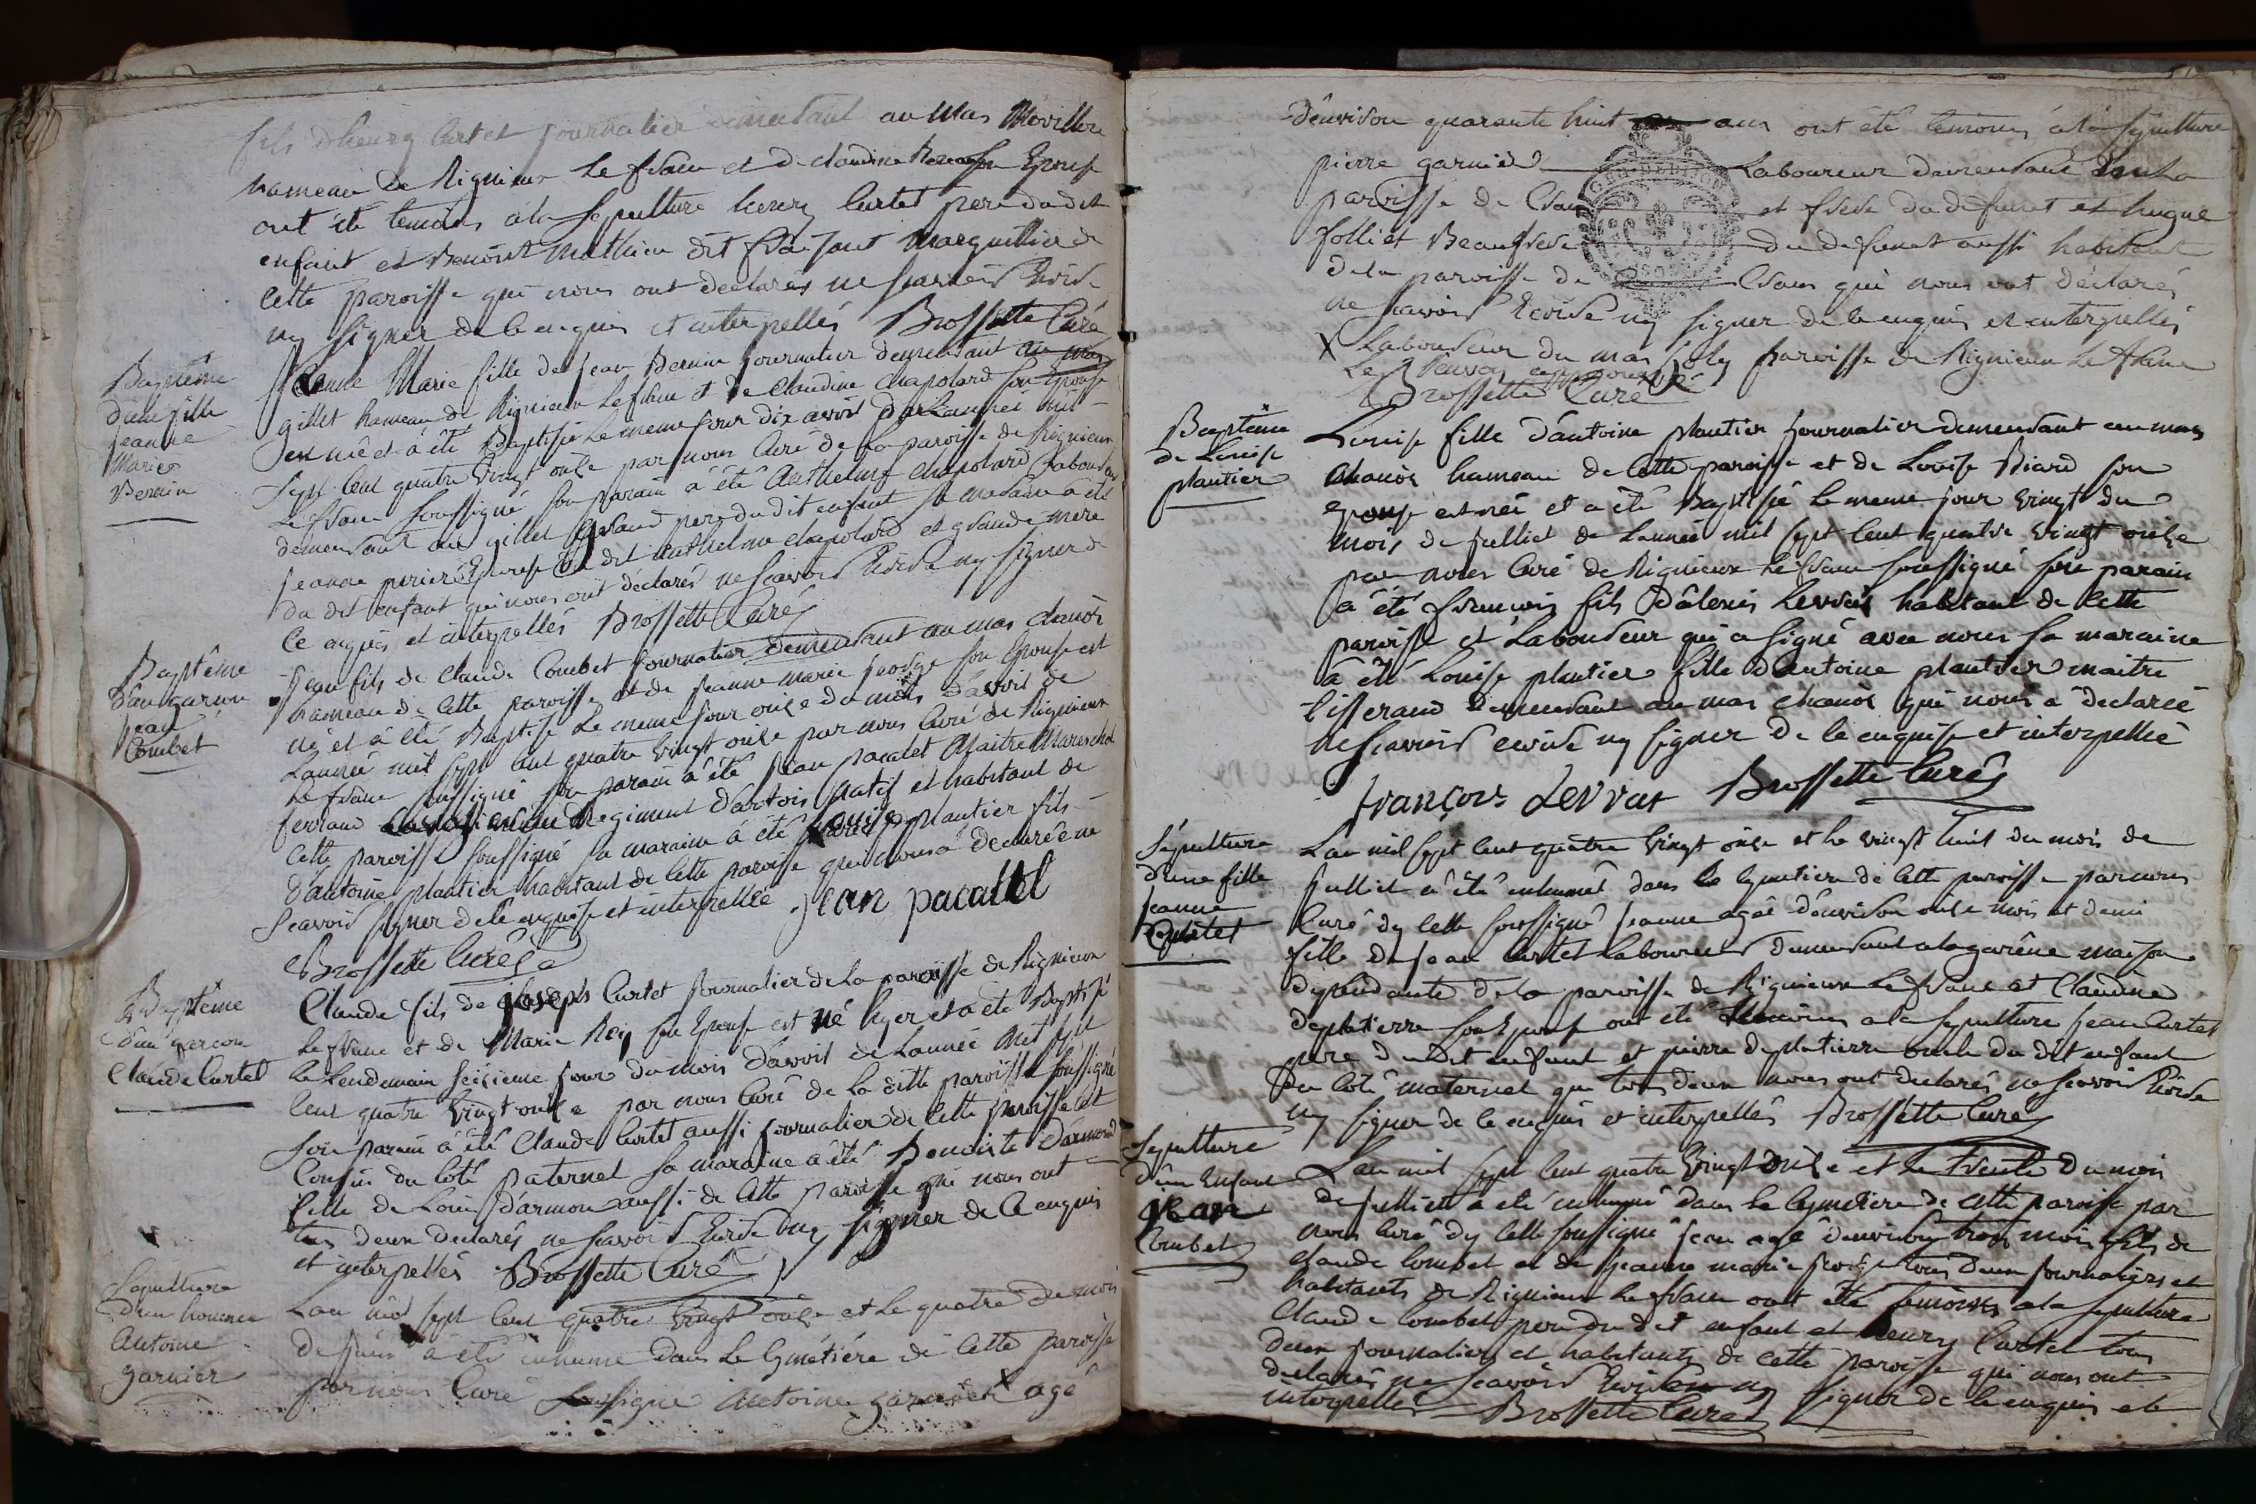 fils d'henry Curtet journalier demeurant au Mas Moville
hameau de Rignieux le franc et de claudine son Epouse
ont été temoins a la Sepulture henry Curtet pere du dit
enfant et Benoist Mathieu dit Marguillier de
Cette paroisse qui nous ont declarés ne scavoir Ecrire
ny signer de ce enquis et interpellés Brossette Curé
Baptême
d'une fille
jeanne
Marie
Bernin
jeanne Marie fille de jean Bernin journalier demeurant au mas
gillet hameau de Rignieux le franc et de Claudine chapolard son Epouse
est née et a été Baptisée le meme jour dix avril de l'année mil
sept cent quatre vingt onze par nous Curé de la paroisse de Rignieux
le franc soussigné son parain a été Anthelme chapolard Laboureur
demeurant au gillet grand pere du dit enfant sa maraine a été
jeanne perier Epouse du dit anthelme chapolard et grande mere
du dit enfant qui nous ont déclarés ne scavoir Ecrire ny signer de
Ce enquis et interpellés Brossette Curé
Baptême
d'un garcon
jean
Combet
jean fils de Claude Combet journalier demeurant au mas chanoz
hameau de Cette paroisse et de jeanne marie george son Epouse est
né et a été Baptisé le meme jour onze du mois d'avril de
l'année mil sept cent quatre vingt onze par nous Curé de Rignieux
le franc soussigné son parain a été jean pacalet Maitre Marechal
ferrand Regiment d'artois natif et habitant de
Cette paroisse soussigné sa maraine a été Louise plantier fille
d'antoine plantier habitant de Cette paroisse qui nous a declaréé ne
scavoir signer de ce enquise et interpellée jean pacallet
Brossette Curé
Baptême
d'un garcon
Claude Curtet
Claude fils de joseph Curtet journalier de la paroisse de Rignieux
le franc et de Marie Rey son Epouse est né hyer et a été Baptisé
le lendemain seizieme jour du mois d'avril de l'année mil sept
cent quatre vingt onze par nous Curé de la ditte paroisse soussigné
son parain a été Claude Curtet aussi journalier de Cette paroisse et
Cousin du Coté paternel sa maraine a été Benoite Darmond
fille de Louis darmon aussi de Cette paroisse qui nous ont
tous deux declarés ne scavoir Ecrire ny signer de Ce enquis
et interpellés Brossette Curé
Sepulture
d'un homme
Antoine
garnier
L'an mil sept cent quatre vingt onze et le quatre du mois
de juin a été inhumé dans le Cymetiére de Cette paroisse
par nous Curé soussigné Antoine garnier X agé
d'environ quarante huit ans ont été temoins a la sepulture
pierre garnier Laboureur demeurant dans la
paroisse de Crans et frere du defunct et hugue
folliet Beaufrere du defunct aussi habitant
de la paroisse de Crans qui nous ont déclarés
ne scavoir Ecrire ny signer de ce enquis et interpellés
X Laboureur du mas joly paroisse de Rignieux le franc
Brossette Curé
Baptême
de Louise
plantier
Louise fille d'antoine plantier journalier demeurant au mas
chanoz hameau de Cette paroisse et de Louise Biard son
Epouse est née et a été Baptisée le meme jour vingt du
mois de juillet de l'année mil sept cent quatre vingt onze
par nous Curé de Rignieux le franc soussigné son parain
a été francois fils d'alexis Levrat habitant de Cette
paroisse et Laboureur qui a signé avec nous sa maraine
a été Louise plantier fille d'Antoine plantier maitre
tisserand demeurant au mas chanoz qui nous a declarée
ne scavoir ecrire ny signer de ce enquise et interpellée
françois Levrat Brossette Curé
Sepulture
d'une fille
jeanne
Curtet
L'an mil sept cent quatre vingt onze et le vingt huit du mois de
juillet a été inhumé dans le Cymetiere de Cette paroisse par nous
Curé d'y celle soussigné jeanne agée d'environ onze mois et demi
fille de jean Curtet Laboureur demeurant a la garenne maison
dependante de la paroisse de Rignieux le franc et Claudine
deplatierre son Epouse ont été temoins a la sepulture jean Curtet
pere du dit enfant et pierre deplatierre oncle du dit enfant
du Coté maternel qui tous deux nous ont declarés ne scavoir Ecrire
ny signer de ce enquis et interpellés Brossette Curé
Sepulture
d'un Enfant
jean
Combet
L'an mil sept cent quatre vingt onze et le trente du mois
de juillet a été inhumé dans le Cymetiere de Cette paroisse par
nous Curé d'y celle soussigné jean agé d'environ trois mois fils de
Claude Combet et de jeanne marie george tous deux journaliers et
habitants de Rignieux le franc ont été temoins a la sepulture
Claude Combet pere du dit enfant et henry Curtet tous
deux journaliers et habitants de cette paroisse qui nous ont
declarés ne scavoir Ecrire ny signer de ce enquis et
interpellés Brossette Curé